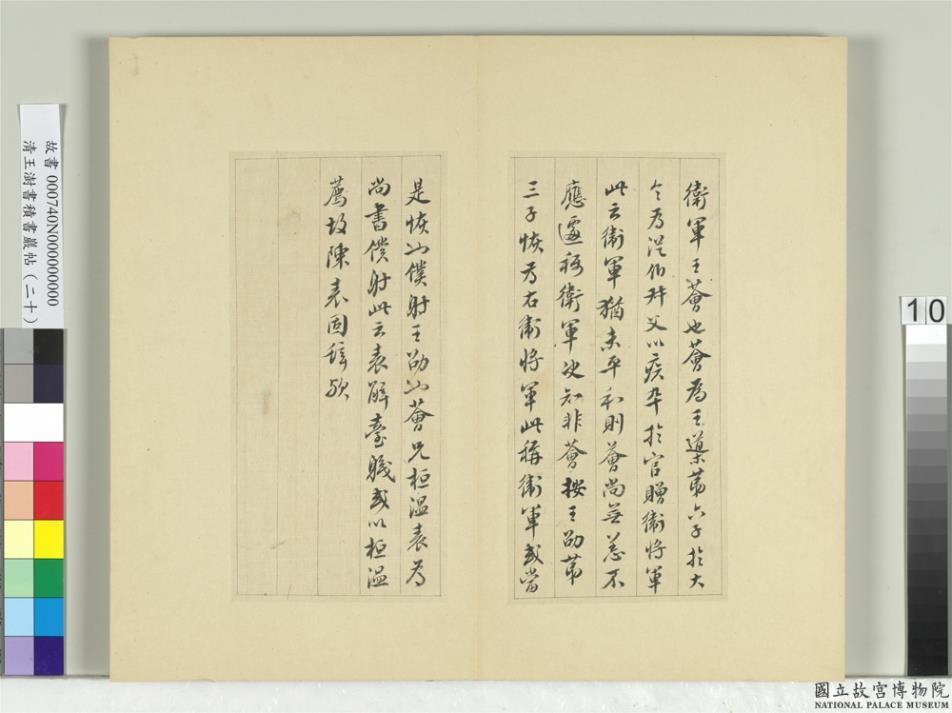 衛軍王薈也薈為王導第六子於大
令為從伯叔父以疾卒於官贈衛將軍
此云衛軍猶未平和則薈尚無恙不
應遽稱衛軍決知非薈按王劭第
三子恢為右衛將軍此稱衛軍或當
是恢以僕射王劭以薈兄桓溫表為
尚書僕射此云表解臺職或以桓溫
薦故陳表固辭歟
故書 000740N000000000
清王澍書積書巖帖（二十）
10
國立故宮博物院
NATIONAL PALACE MUSEUM